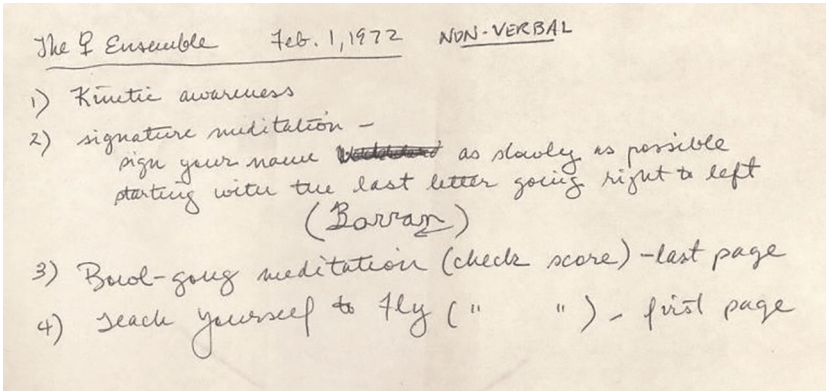 The ♀ Ensemble Feb. 1, 1972 NON-VERBAL
1) Kinetic awareness
2) signature meditation -
sign your name as slowly as possible
starting with the last letter going right to left
(Borran)
3) Bowl-gong meditation (check score) - last page
4) Teach yourself to fly (" ") - first page